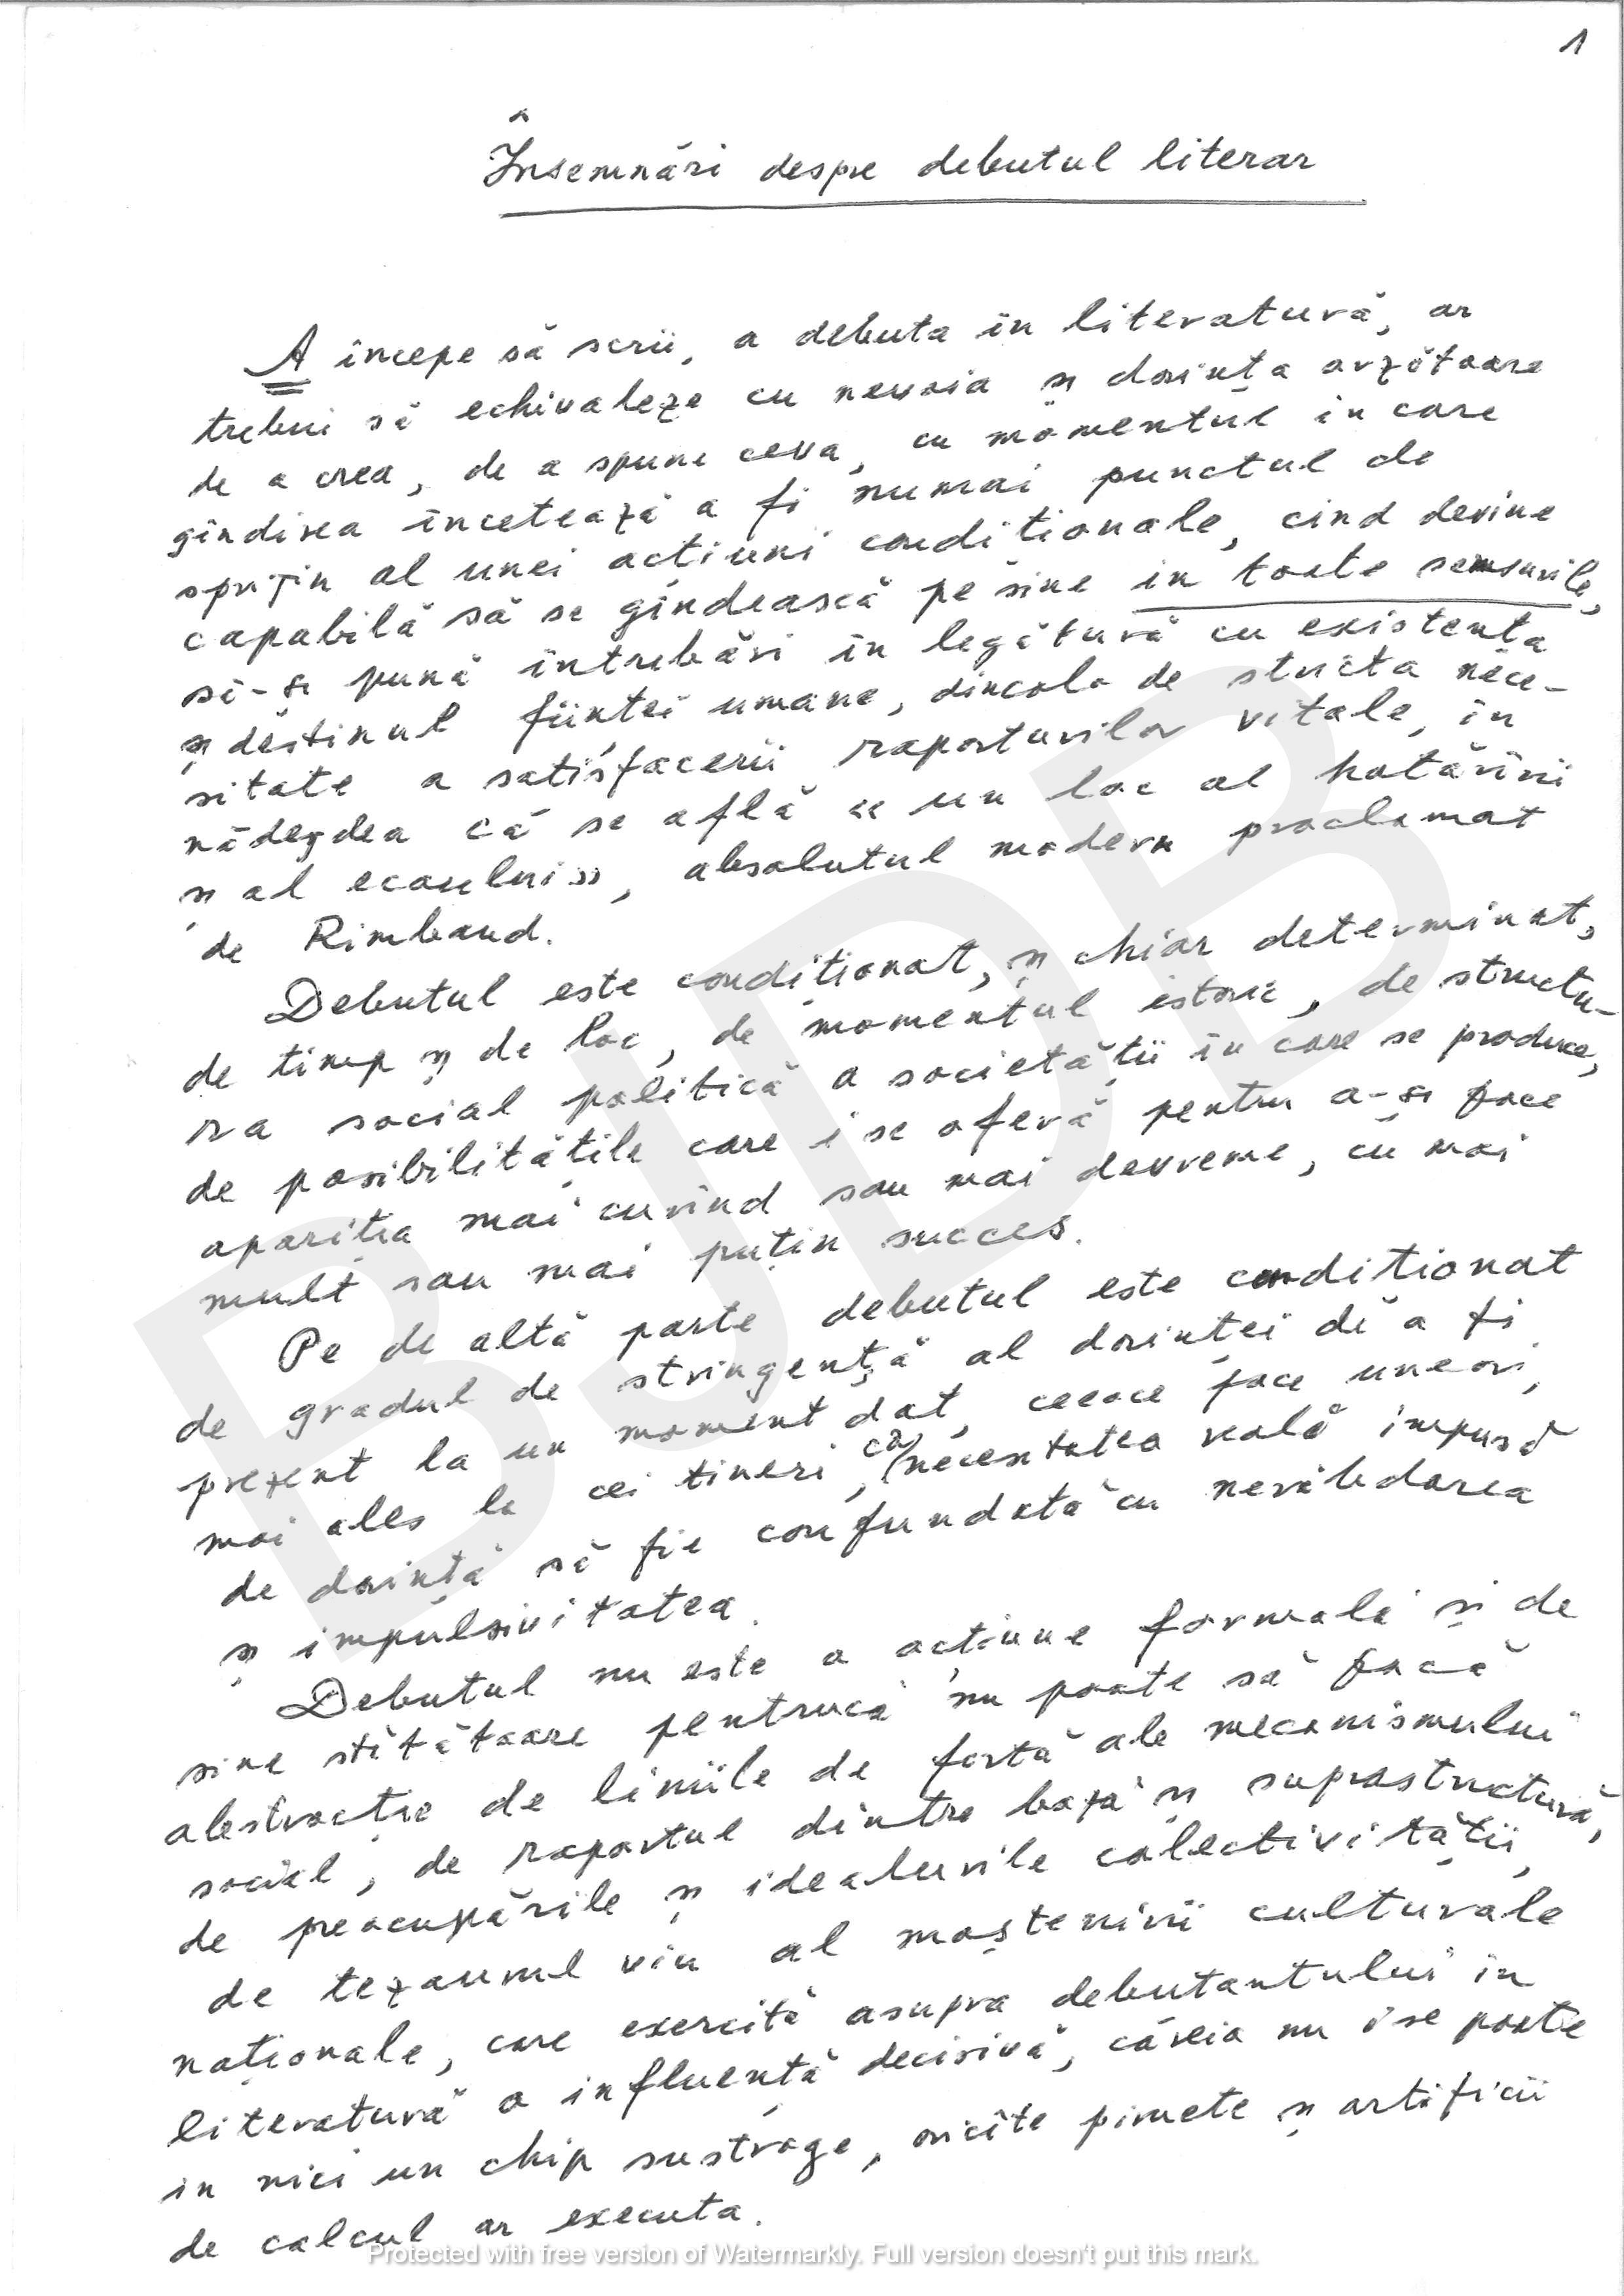 1
Însemnări despre debutul literar
A începe să scrii, a debuta în literatură, ar
trebui să echivaleze cu nevoia și dorința arzătoare
de a crea, de a spune ceva, cu momentul în care
gîndirea încetează a fi numai punctul de
sprijin al unei acțiuni condiționale, cînd devine
capabilă să se gîndească pe sine in toate sensurile,
să-și pună întrebări în legătură cu existența
și destinul ființei umane, dincolo de stricta nece-
sitate a satisfacerii raporturilor vitale, în
nădejdea că se află « un loc al hotărîrii
și al ecoului», absolutul modern proclamat
de Rimbaud.
Debutul este condiționat, și chiar determinat,
de timp și de loc, de momentul istoric, de structu-
ra social politică a societății în care se produce,
de posibilitățile care i se oferă pentru a-și face
apariția mai curînd sau mai devreme, cu mai
mult sau mai puțin succes.
Pe de altă parte debutul este condiționat
de gradul de stringență al dorinței de a fi
prezent la un moment dat, ceeace face uneori,
mai ales la cei tineri, ca necesitatea reală impusă
de dorință să fie confundată cu nerăbdarea
și impulsivitatea.
Debutul nu este o acțiune formală și de
sine stătătoare pentrucă nu poate să facă
abstracție de liniile de forță ale mecanismului
social, de raportul dintre bază și suprastructură,
de preocupările și idealurile colectivității,
de tezaurul viu al moștenirii culturale
naționale, care exercită asupra debutantului în
literatură o influență decisivă, căreia nu i se poate
in nici un chip sustrage, oricîte piruete și artificii
de calcul ar executa.
BJDB
Protected with free version of Watermarkly. Full version doesn't put this mark.